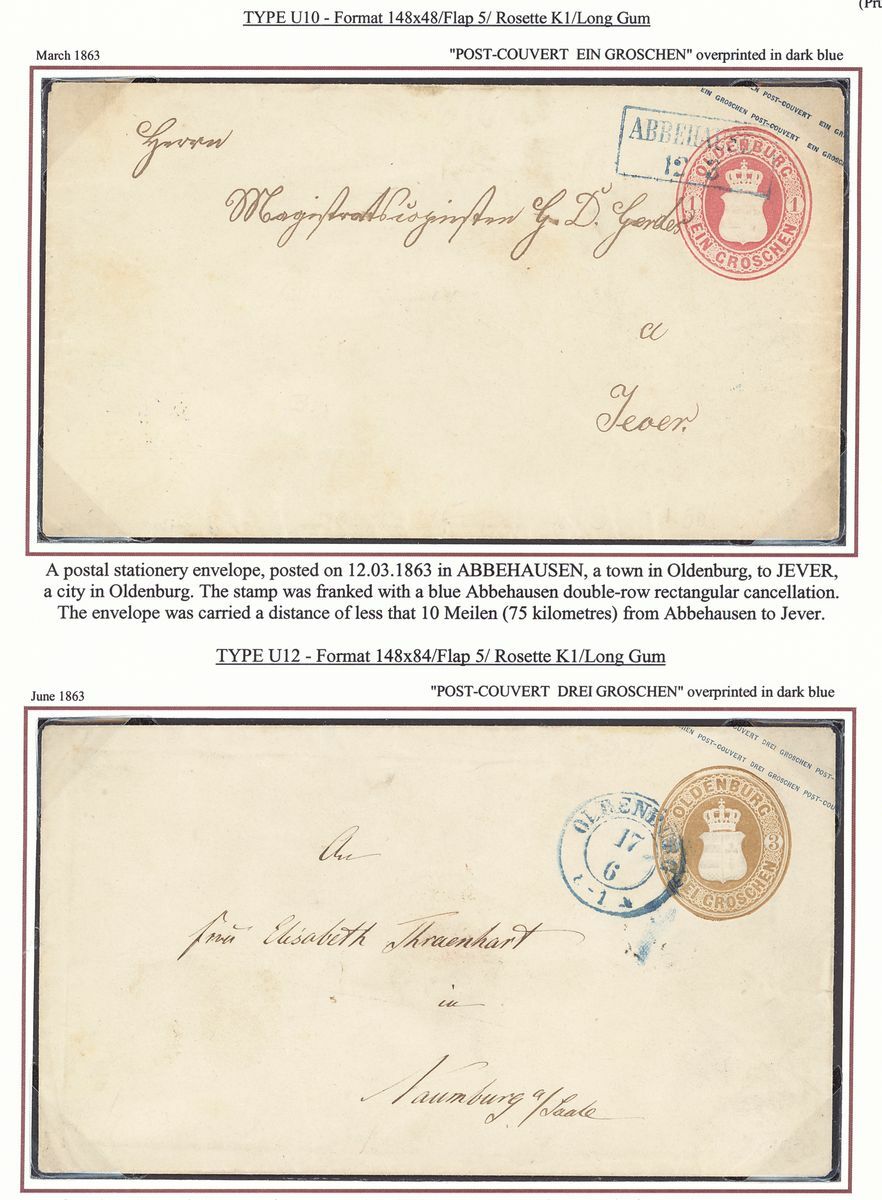 (Pru
TYPE U10 - Format 148x48/Flap 5/ Rosette K1/Long Gum
March 1863
"POST-COUVERT EIN GROSCHEN" overprinted in dark blue
EN POST-COUVERT EIN GR
EIN GROSCHEN POST-COUVERT EIN GROSC
ABBEHAUSEN
12 3
OLDENBURG
1 1
EIN GROSCHEN
Herrn
Magistratscopiisten G. D. Gerdes
a
Jever.
A postal stationery envelope, posted on 12.03.1863 in ABBEHAUSEN, a town in Oldenburg, to JEVER,
a city in Oldenburg. The stamp was franked with a blue Abbehausen double-row rectangular cancellation.
The envelope was carried a distance of less that 10 Meilen (75 kilometres) from Abbehausen to Jever.
TYPE U12 - Format 148x84/Flap 5/ Rosette K1/Long Gum
June 1863
"POST-COUVERT DREI GROSCHEN" overprinted in dark blue
POST-COUVERT DREI GROSCHEN POST-
HEN POST-COUVERT DREI GROSCHEN POST-COU
OLDENBURG
17
6
OLDENBURG
3
DREI GROSCHEN
An
Frau Elisabeth Thraenhart
in
Naumburg a/Saale